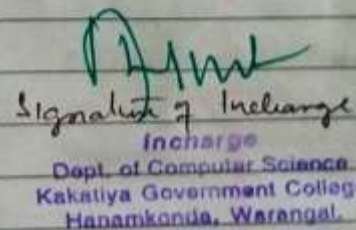 Signature of Incharge
Incharge
Dept. of Computer Science
Kakatiya Government Colleg
Hanamkonda, Warangal.